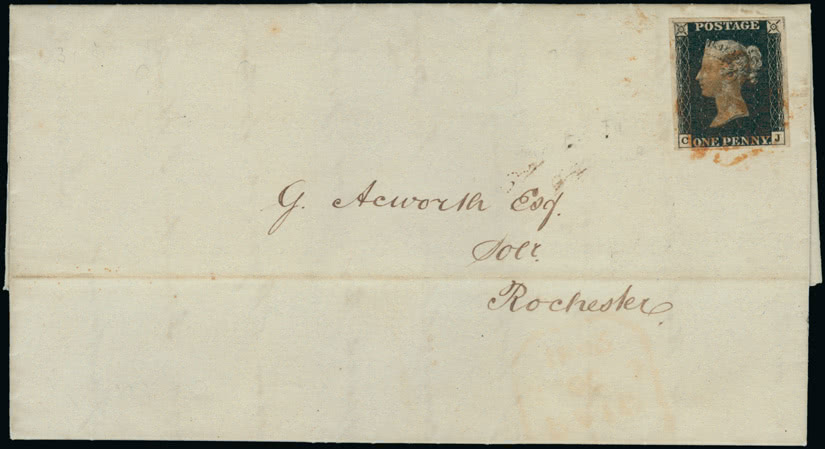 POSTAGE
C J
ONE PENNY.
G. Acworth Esq.
Solr.
Rochester